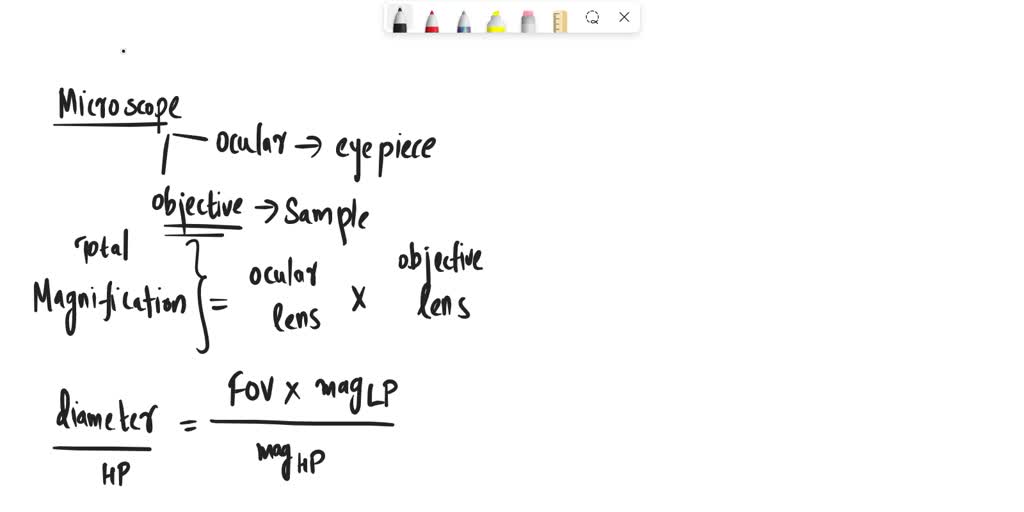 Microscope
ocular → eyepiece
objective → Sample
Total
Magnification } = ocular lens x objective lens
diameter HP = FOV x mag LP / mag HP